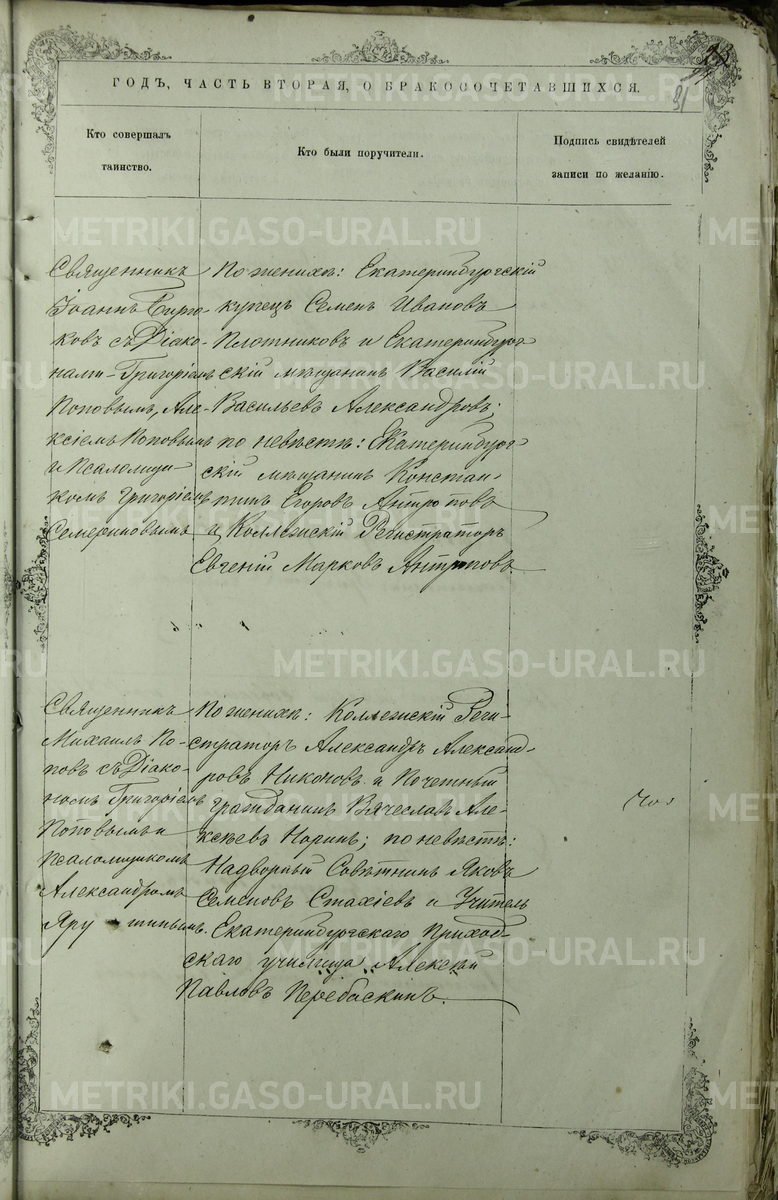 ГОДЪ, ЧАСТЬ ВТОРАЯ, О БРАКОСОЧЕТАВШИХСЯ.
31
Кто совершалъ
таинство.
Кто были поручители.
Подпись свидѣтелей
записи по желанію.
Священникъ
Іоаннъ
ковъ съ Діако-
нами Григоріемъ
Поповымъ, Але-
ксіемъ Поповымъ
и Псаломщи-
комъ Григоріемъ
По женихѣ: Екатеринбургскій
купецъ Семенъ Ивановъ
Плотниковъ и Екатеринбург-
скій мѣщанинъ Василій
Васильевъ Александровъ;
по невѣстѣ: Екатеринбург-
скій мѣщанинъ Констан-
тинъ Егоровъ Антроповъ
и Коллежскій Регистраторъ
Евгеній Марковъ Антроповъ.
Священникъ
Михаилъ По-
повъ съ Діако-
номъ Григоріемъ
Поповымъ и
псаломщикомъ
Александромъ
По женихѣ: Коллежскій Реги-
страторъ Александръ Александ-
ровъ и Почетный
Гражданинъ Вячеславъ Але-
ксѣевъ Норинъ; по невѣстѣ:
Надворный Совѣтникъ Яковъ
Семеновъ Стахіевъ и Учитель
Екатеринбургскаго Приход-
скаго училища Алексѣй
Павловъ Перебаскинъ.
METRIKI.GASO-URAL.RU
METRIKI.GASO-URAL.RU
METRIKI.GASO-URAL.RU
METRIKI.GASO-URAL.RU
METRIKI.GASO-URAL.RU
METRIKI.GASO-URAL.RU
METRIKI.GASO-URAL.RU
METRIKI.GASO-URAL.RU